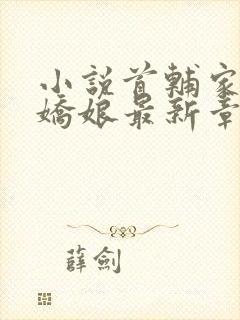 小說首輔家
嬌娘最新章
薛劍